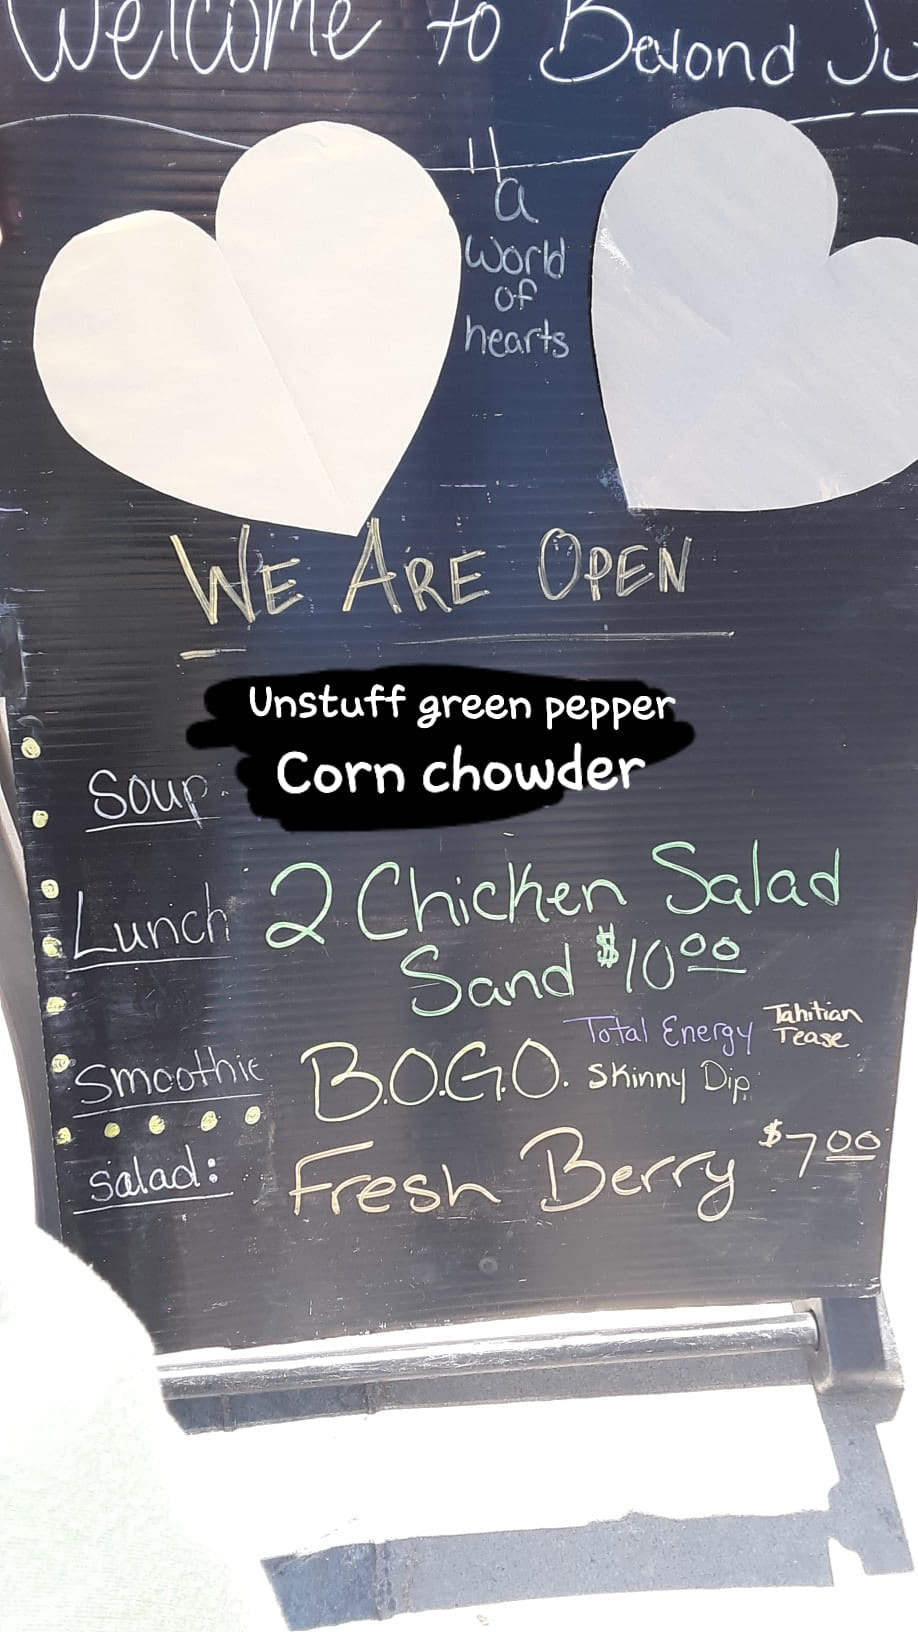 Welcome to Beyond
a
world
of
hearts
WE ARE OPEN
Unstuff green pepper
Corn chowder
Soup
Lunch 2 Chicken Salad
Sand $10.00
Total Energy Tahitian
Tease
Smoothie B.O.G.O. Skinny Dip
Salad: Fresh Berry $7.00